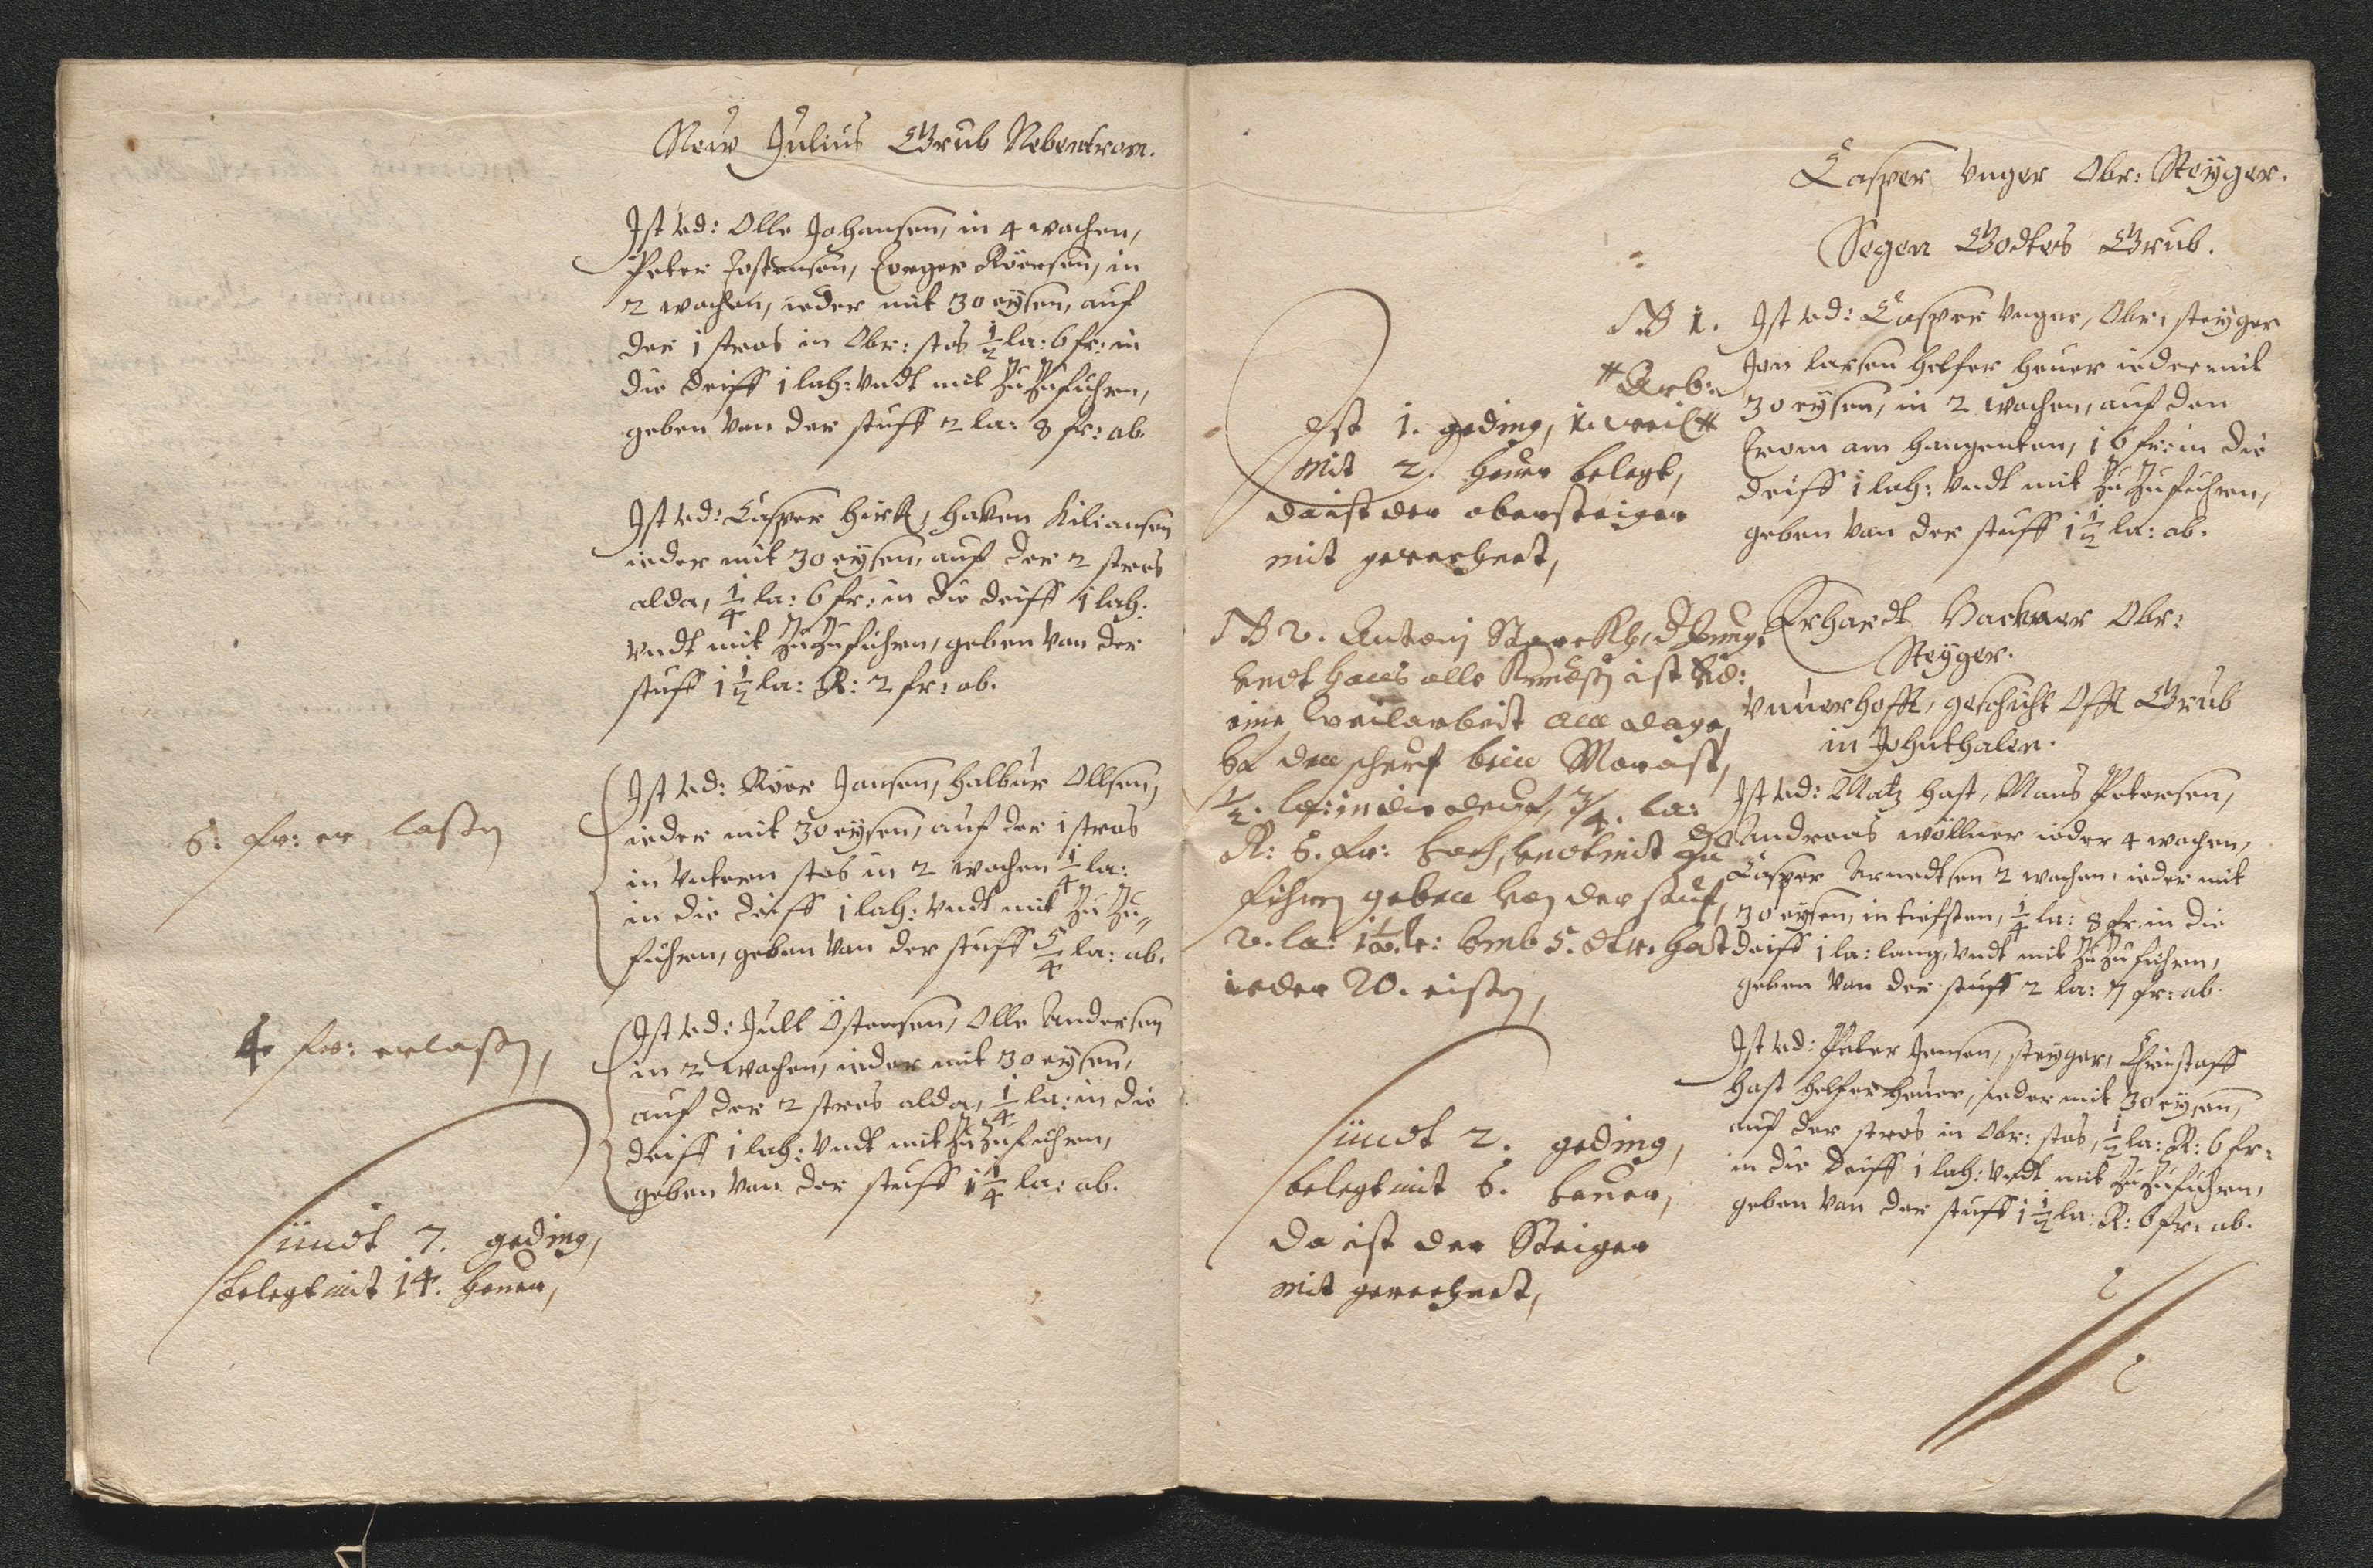 New Julius Grub Nebentrom.
Ist vd: Olle Johansen, in 4 wochen,
Peter Jostensen, Torger Röersen, in
2 wochen, ieder mit 30 eysen, auf
der 1 stros in Obr: stos 1/2 la: 6 fr: in
die deiff 1 lach: vndt mit Zu Zufuhren,
geben von der stuff 2 la: 8 fr: ab.
Ist vd: Casper hirst, haken Kiliansen
ieder mit 30 eysen, auf der 2 stros
alda, 1/4 la: 6 fr: in die deiff 1 lach:
vndt mit Zu Zufuhren, geben von der
stuff 1 1/2 la: R: 2 fr: ab.
6: fr: er laßen
Ist vd: Röer Jansen, halbur Ollsen,
ieder mit 30 eysen, auf der 1 stros
in Vntern stos in 2 wochen 1/4 la:
in die deiff 1 lach: vndt mit Zu Zu„
fuhren, geben von der stuff 5/4 la: ab.
4 fr: erlaßen,
Ist vd: Jull Östensen, Olle Andersen
in 2 wochen, ieder mit 30 eysen,
auf der 2 stros alda, 1/4 la: in die
deiff 1 lach: vndt mit Zu Zufuhren,
geben von der stuff 1 1/4 la: ab.
Sündt 7. geding,
belegt mit 14. heuer,
Casper Vnger Obr: Steyger.
Segen Godtes Grub.
NB 1.
Ist vd: Casper Vnger, Obr: steyger
Jon larsen helfer heuer ieder mit
30 eysen, in 2 wochen, auf den
Trom am hangenten, 16 fr: in die
deiff 1 lach: vndt mit Zu Zufuhren,
geben von der stuff 1 1/2 la: ab.
* Arb:
Ist 1. geding, 1. weil *
mit 2. heuer belegt,
da ist der obersteiger
mit gerechent,
NB 2. Antonj
vndt hans olle ist vd:
eine weilarbeit
1/2. la: in die deuf, 3/4. la:
R: 6. fr: hoch, vndt mit zu
fuhren geben von der stuf,
2. la: 1 1/2 fr: vmb 5. dlr. hat
ieder 20. eißen,
Erhardt Obr:
Steyger.
Vnuerhofft, geschicht Offt Grub
in Johnthalen.
Ist vd: Matz hast, Mans Petersen,
Andreas wöllner ieder 4 wochen,
Casper Arnedtsen 2 wochen, ieder mit
30 eysen, in tiefsten, 1/4 la: 8 fr: in die
deiff 1 la: lang, vndt mit Zu Zufuhren,
geben von der stuff 2 la: 7 fr: ab.
Ist vd: Peter Jensen, steyger, Christoff
hast helfer heuer, ieder mit 30 eysen,
auf der stros in Obr: stos, 1/2 la: R: 6 fr:
in die deiff 1 lach: vndt mit Zu Zufuhren,
geben von der stuff 1 1/2 la: R: 6 fr: ab.
Sündt 2. geding,
belegt mit 6. heuer,
da ist der Steiger
mit gerechent,